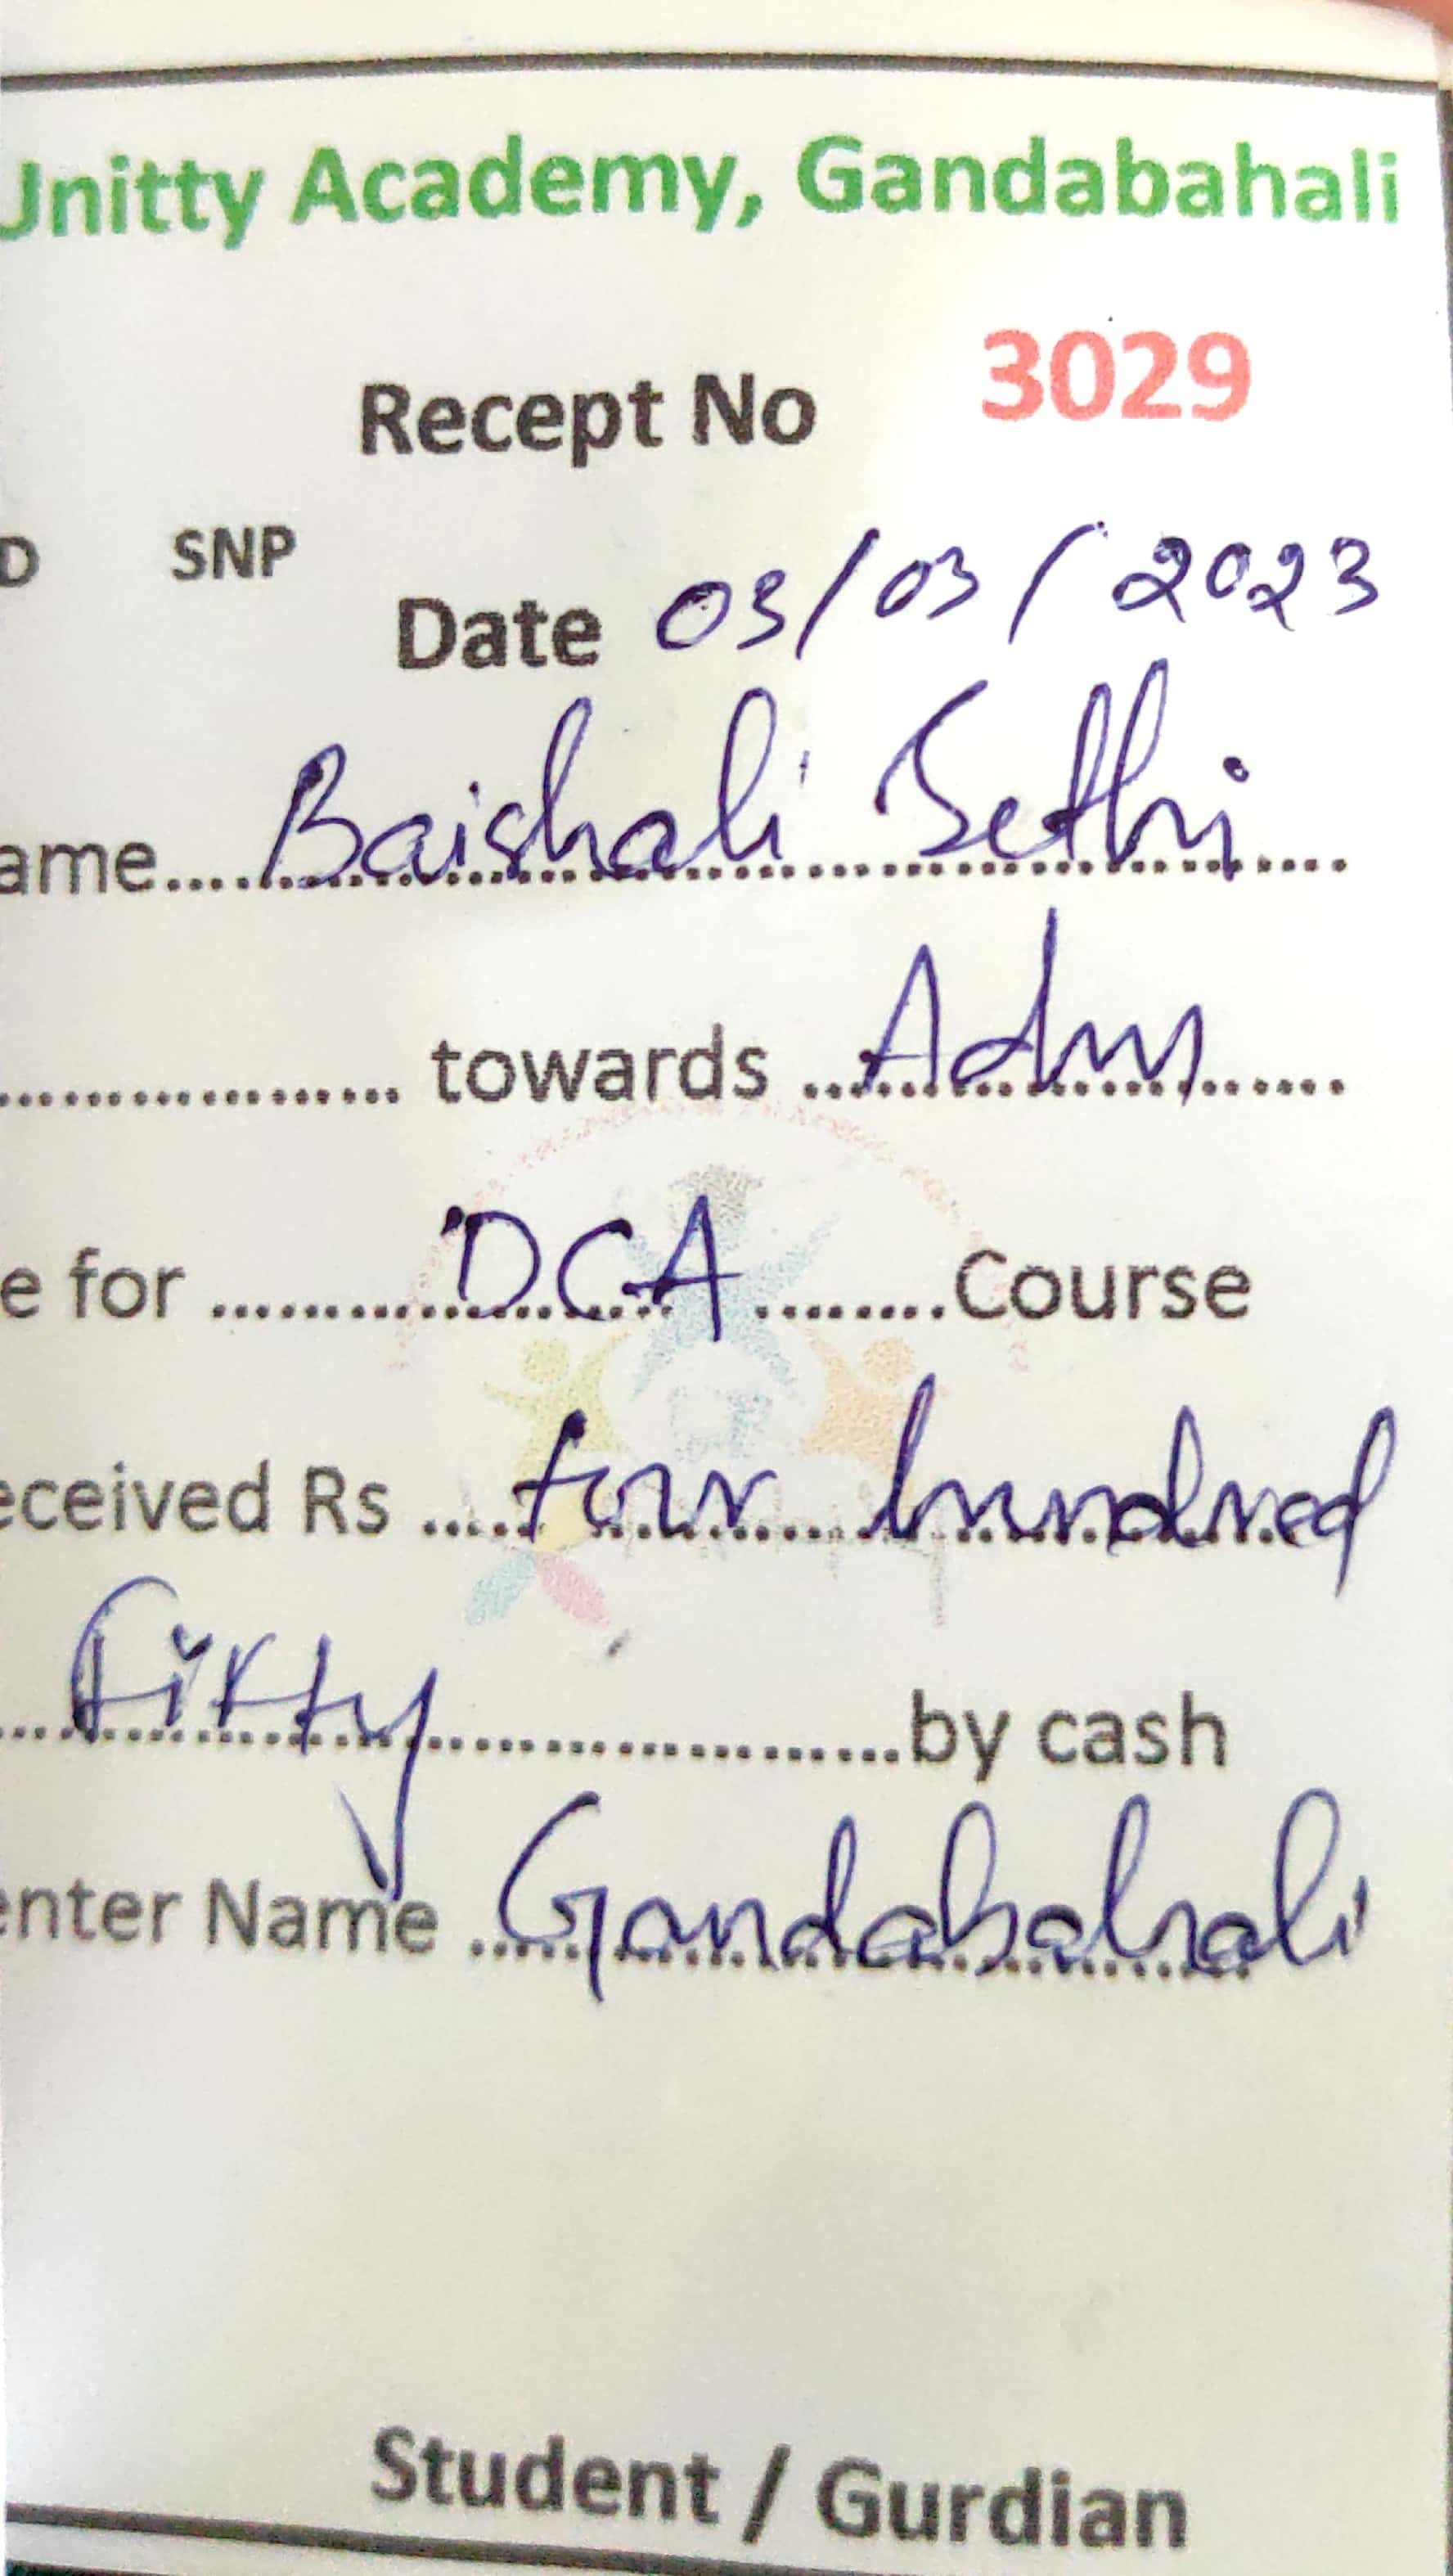 Unitty Academy, Gandabahali
Recept No 3029
D SNP
Date 03/03/2023
ame.... Baishali Sethi ....
.................. towards ... Adm ......
e for ............ DCA ........Course
eceived Rs .... four hundred
... Fifty ........................by cash
enter Name ... Gandabahali
Student / Gurdian